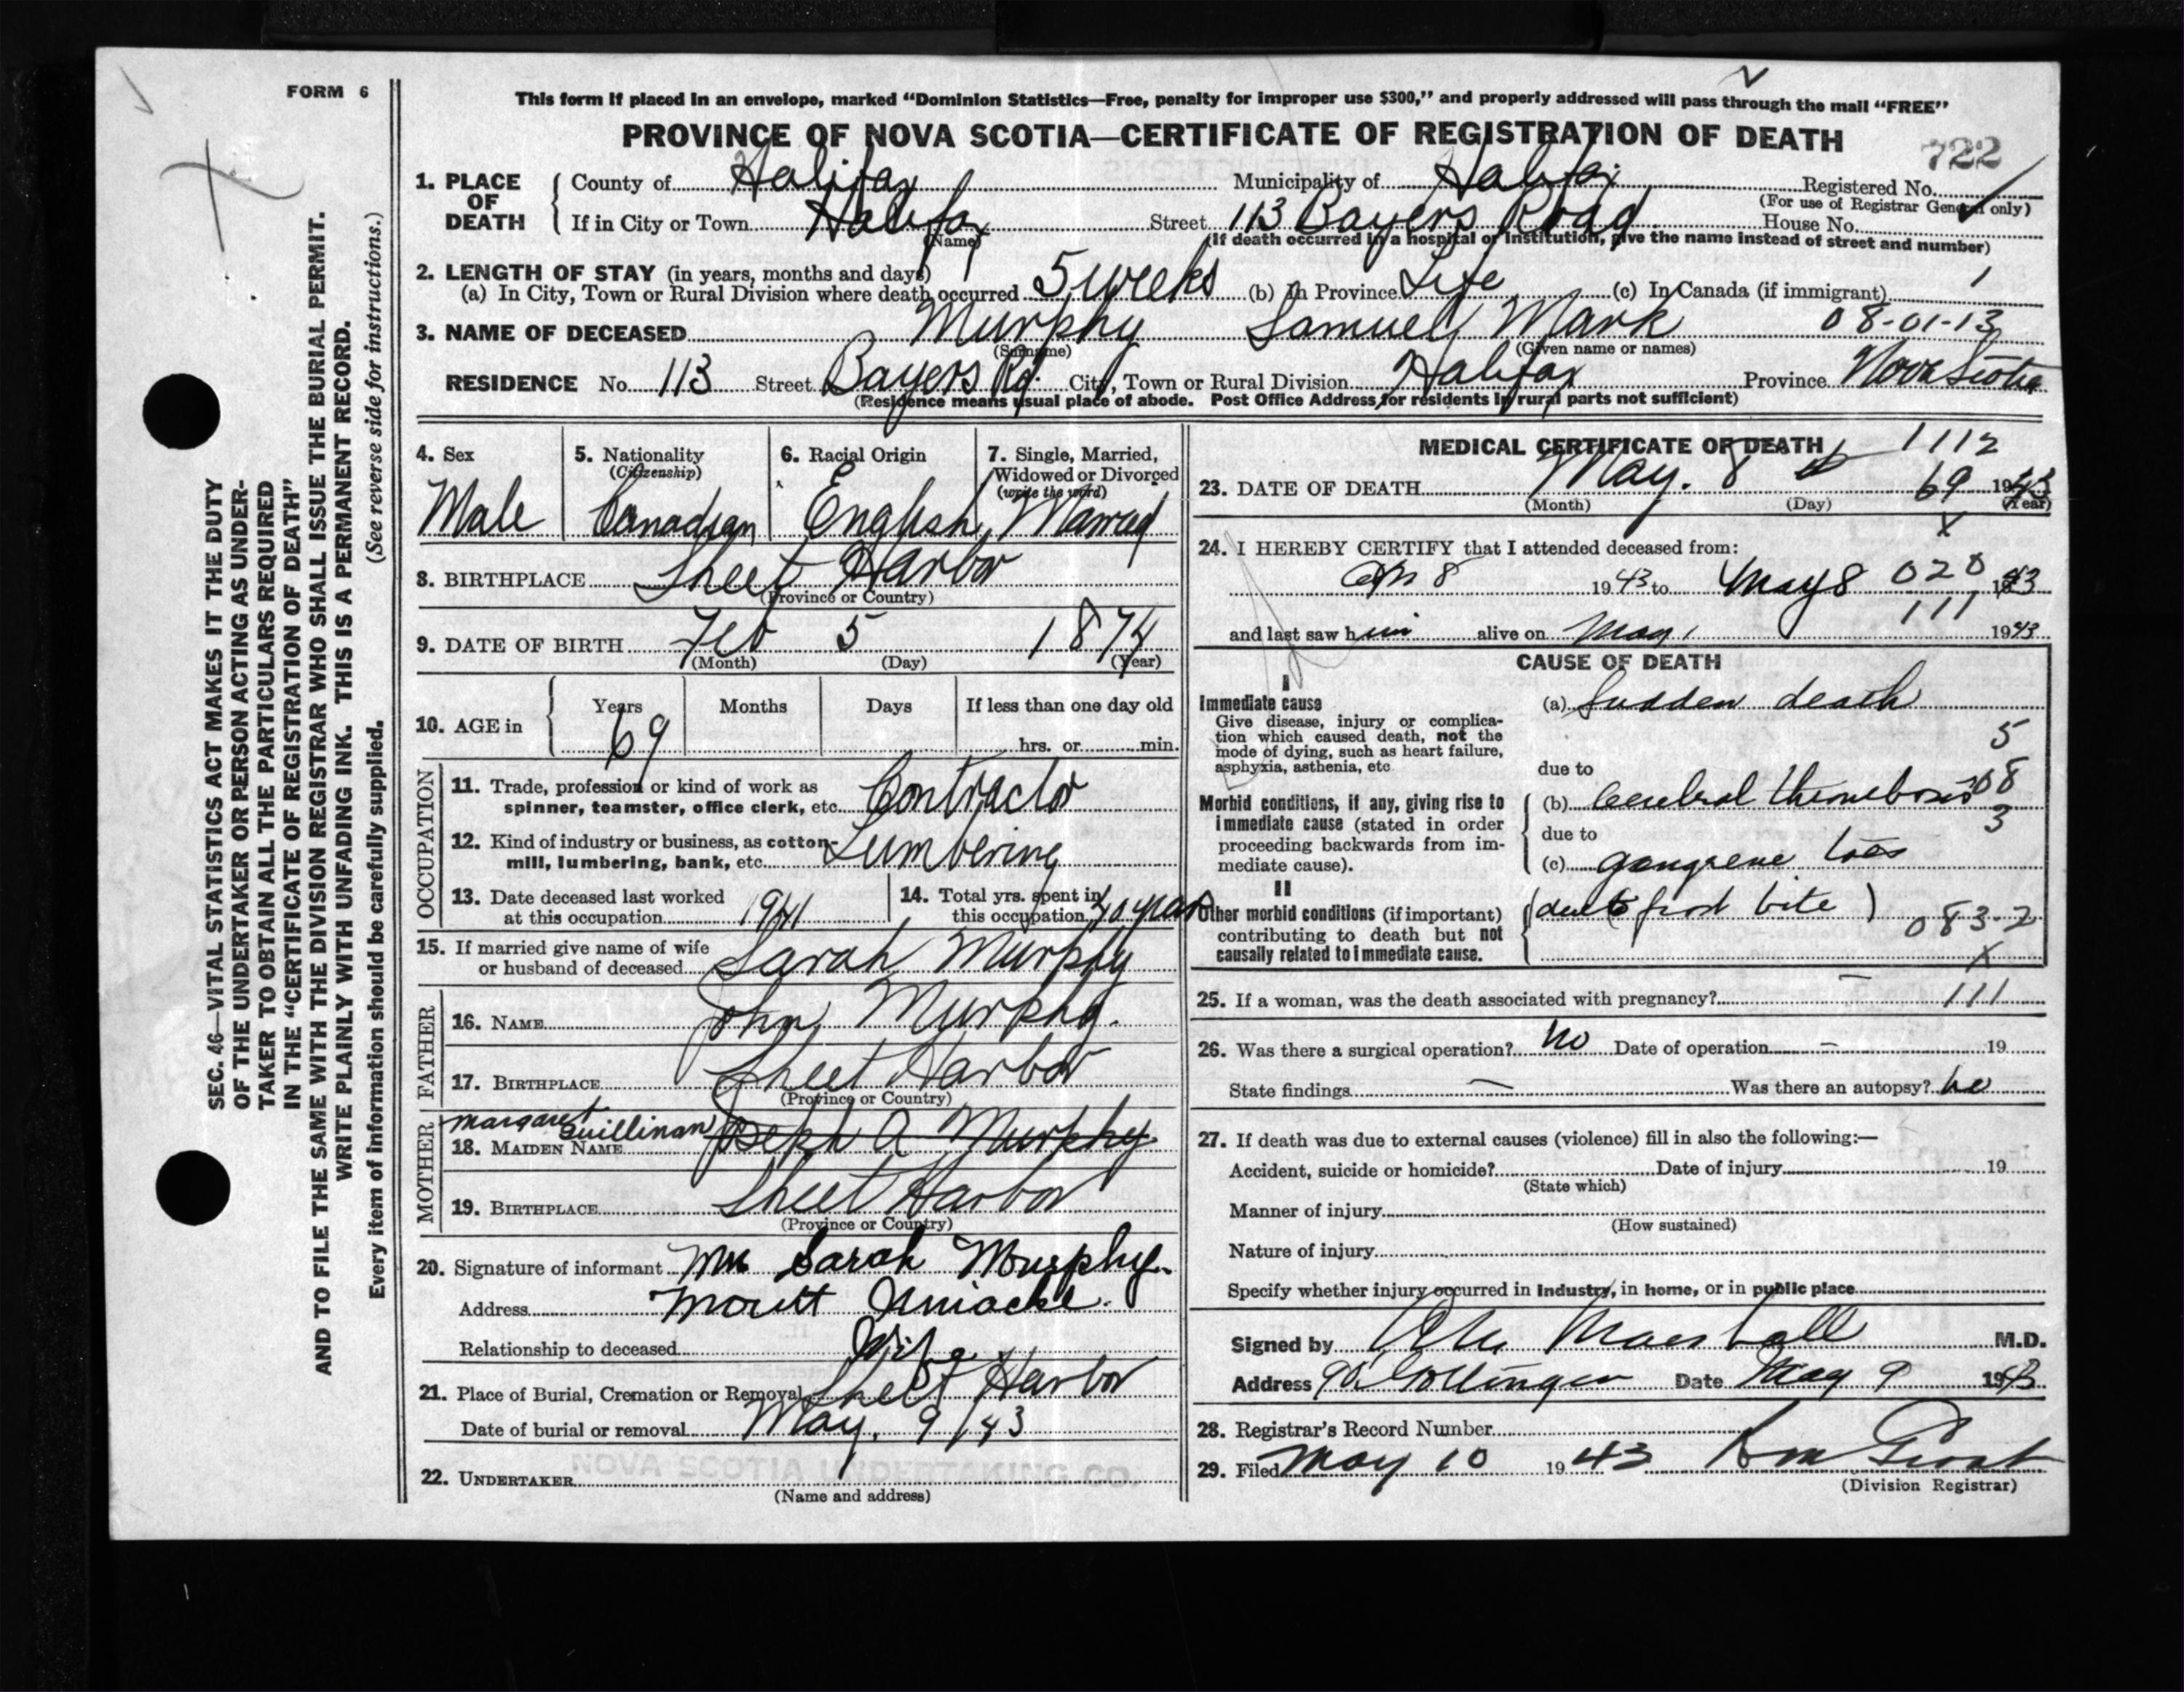 FORM 6
This form if placed in an envelope, marked "Dominion Statistics—Free, penalty for improper use $300," and properly addressed will pass through the mail "FREE"
PROVINCE OF NOVA SCOTIA—CERTIFICATE OF REGISTRATION OF DEATH
722
1. PLACE OF DEATH
County of Halifax Municipality of Halifax Registered No.
(For use of Registrar General only)
If in City or Town Halifax Street 113 Bayers Road House No.
(Name) (If death occurred in a hospital or institution, give the name instead of street and number)
2. LENGTH OF STAY (in years, months and days)
(a) In City, Town or Rural Division where death occurred 5 weeks (b) In Province Life (c) In Canada (if immigrant) 1
3. NAME OF DECEASED Murphy Samuel Mark 08-01-13
(Surname) (Given name or names)
RESIDENCE No. 113 Street Bayers Rd. City, Town or Rural Division Halifax Province Nova Scotia
(Residence means usual place of abode. Post Office Address for residents in rural parts not sufficient)
4. Sex
Male
5. Nationality
(Citizenship)
Canadian
6. Racial Origin
English
7. Single, Married, Widowed or Divorced
(write the word)
Married
8. BIRTHPLACE Sheet Harbor
(Province or Country)
9. DATE OF BIRTH Feb 5 1874
(Month) (Day) (Year)
10. AGE in Years Months Days If less than one day old
69 hrs. or min.
OCCUPATION
11. Trade, profession or kind of work as
spinner, teamster, office clerk, etc. Contractor
12. Kind of industry or business, as cotton-
mill, lumbering, bank, etc. Lumbering
13. Date deceased last worked
at this occupation 1941
14. Total yrs. spent in
this occupation 40 years
15. If married give name of wife
or husband of deceased Sarah Murphy
FATHER
16. NAME John Murphy.
17. BIRTHPLACE Sheet Harbor
(Province or Country)
MOTHER
Margaret Quillinan
18. MAIDEN NAME Joseph A Murphy
19. BIRTHPLACE Sheet Harbor
(Province or Country)
20. Signature of informant Mrs Sarah Murphy.
Address Mount Uniacke.
Relationship to deceased Wife
21. Place of Burial, Cremation or Removal Sheet Harbor
Date of burial or removal May. 9/43
22. UNDERTAKER NOVA SCOTIA UNDERTAKING CO.
(Name and address)
MEDICAL CERTIFICATE OF DEATH 1112
23. DATE OF DEATH May. 8 69 1943
(Month) (Day) (Year)
X
24. I HEREBY CERTIFY that I attended deceased from:
8 1943 to May 8 020 1943
111
and last saw him alive on May 1 1943
CAUSE OF DEATH
I
Immediate cause
Give disease, injury or complica-
tion which caused death, not the
mode of dying, such as heart failure,
asphyxia, asthenia, etc
(a) Sudden death
5
due to
Morbid conditions, if any, giving rise to
immediate cause (stated in order
proceeding backwards from im-
mediate cause).
(b) Cerebral thrombosis 08
3
due to
(c) gangrene toes
II
Other morbid conditions (if important)
contributing to death but not
causally related to immediate cause.
(due to frost bite)
083-2
X
25. If a woman, was the death associated with pregnancy? — 111
26. Was there a surgical operation? No Date of operation — 19
State findings — Was there an autopsy? No
27. If death was due to external causes (violence) fill in also the following:—
Accident, suicide or homicide? Date of injury 19
(State which)
Manner of injury
(How sustained)
Nature of injury
Specify whether injury occurred in Industry, in home, or in public place
Signed by Marshall M.D.
Address Gottingen Date May 9 1943
28. Registrar's Record Number
29. Filed May 10 1943
(Division Registrar)
SEC. 46—VITAL STATISTICS ACT MAKES IT THE DUTY
OF THE UNDERTAKER OR PERSON ACTING AS UNDER-
TAKER TO OBTAIN ALL THE PARTICULARS REQUIRED
IN THE "CERTIFICATE OF REGISTRATION OF DEATH"
AND TO FILE THE SAME WITH THE DIVISION REGISTRAR WHO SHALL ISSUE THE BURIAL PERMIT.
WRITE PLAINLY WITH UNFADING INK. THIS IS A PERMANENT RECORD.
Every item of information should be carefully supplied. (See reverse side for instructions.)